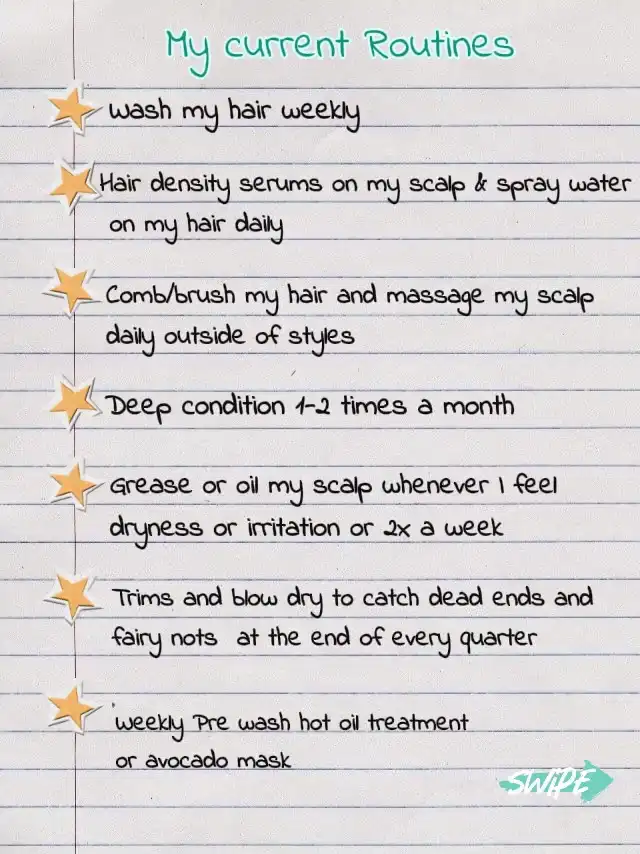 My current Routines
wash my hair weekly
Hair density serums on my scalp & spray water
on my hair daily
Comb/brush my hair and massage my scalp
daily outside of styles
Deep condition 1-2 times a month
Grease or oil my scalp whenever I feel
dryness or irritation or 2x a week
Trims and blow dry to catch dead ends and
fairy nots at the end of every quarter
weekly Pre wash hot oil treatment
or avocado mask
SWIPE